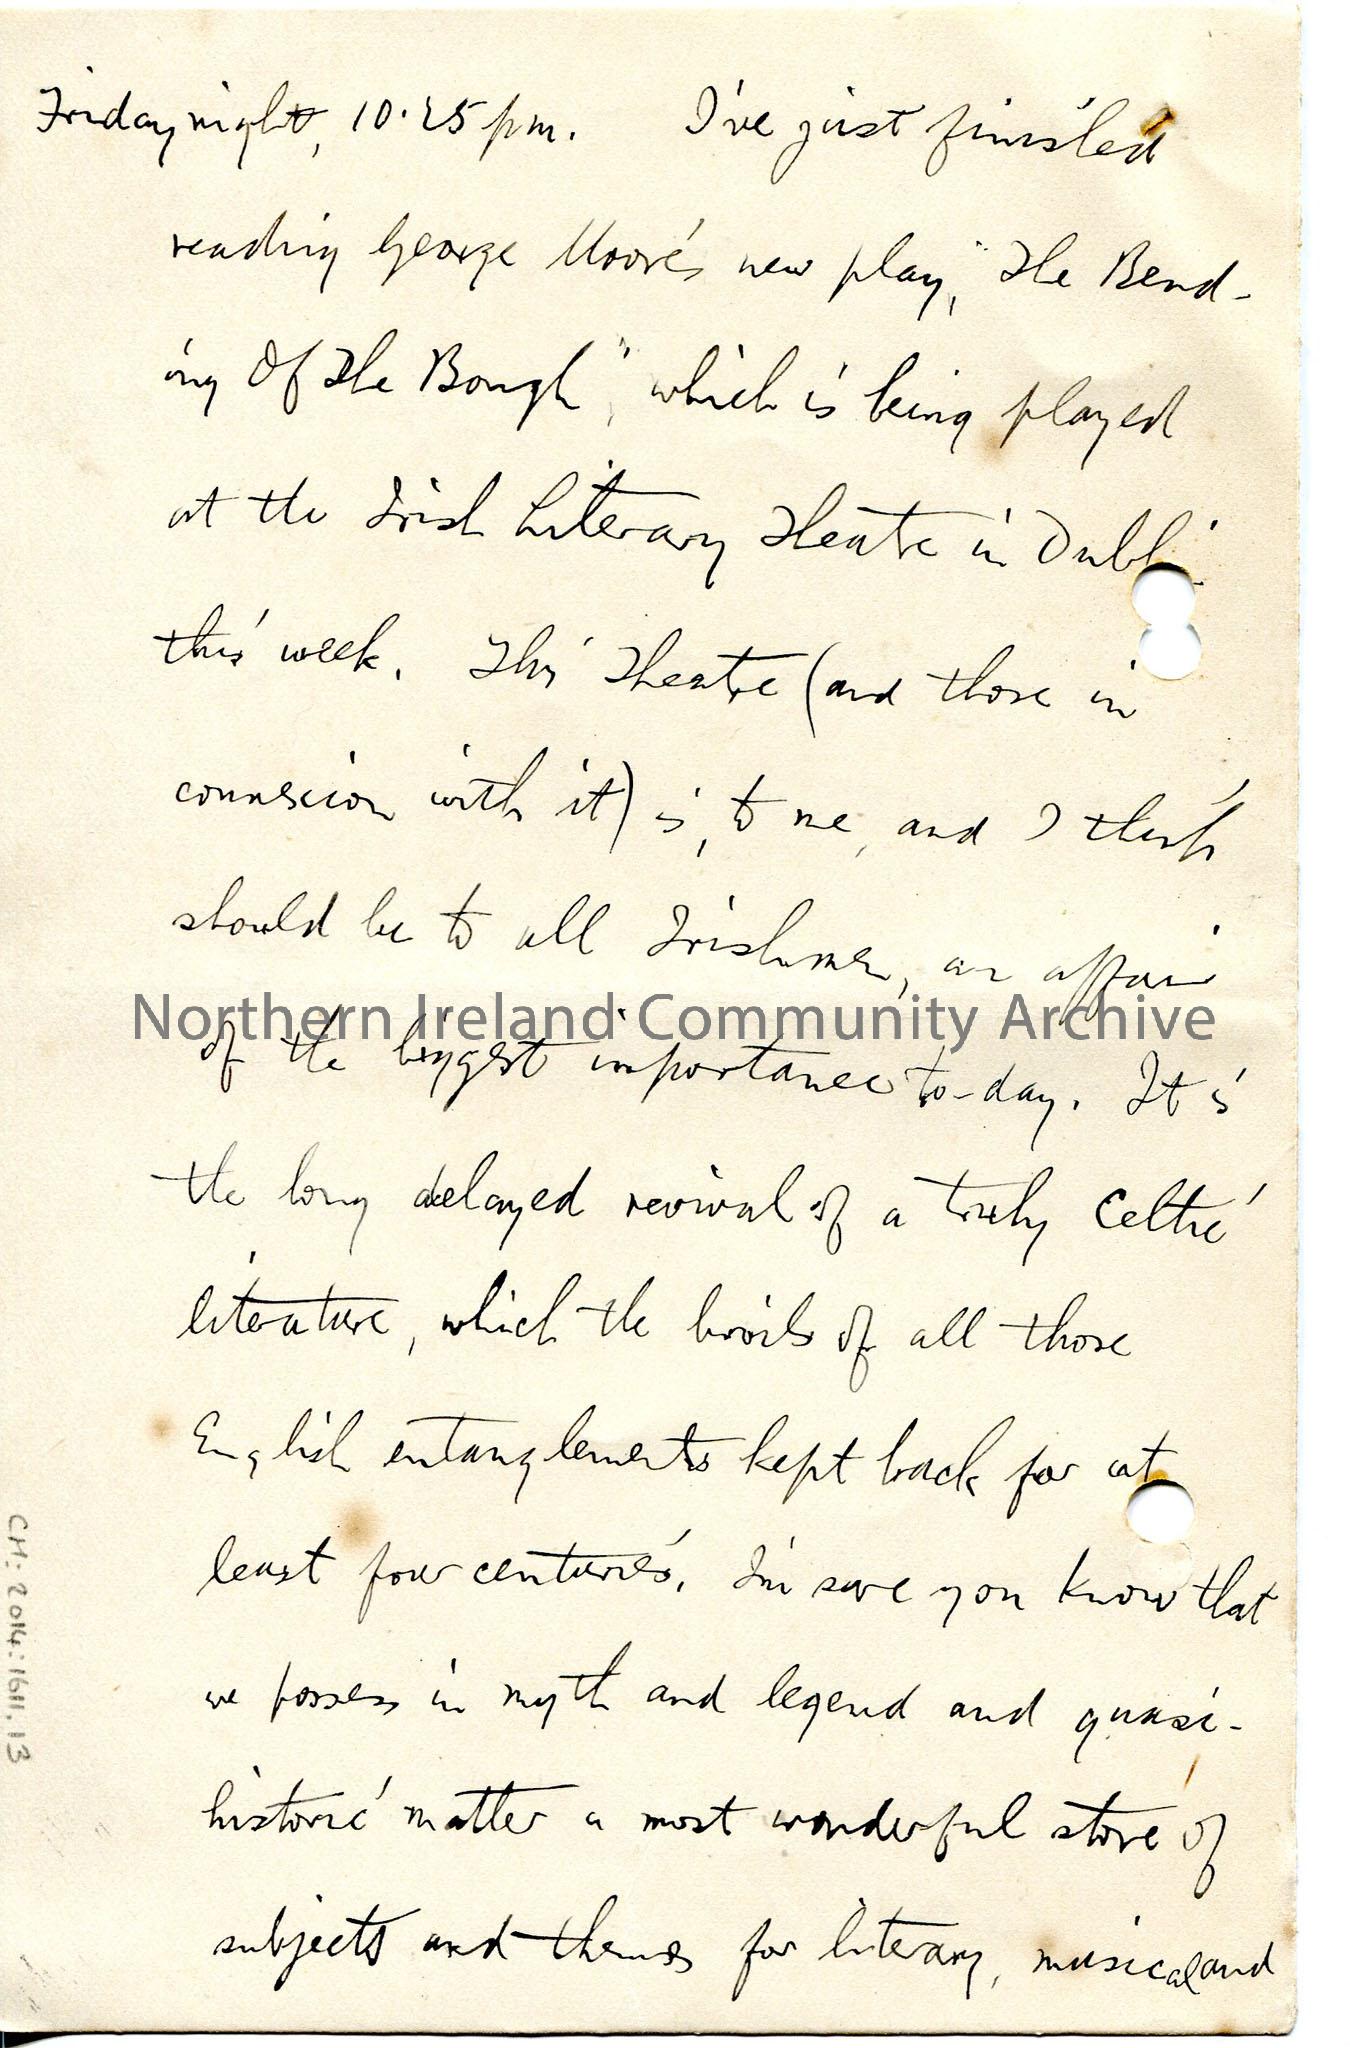 Friday night, 10.25 pm. I've just finished
reading George Moore's new play, "The Bend-
ing Of The Bough", which is being played
at the Irish Literary Theatre in Dublin
this week. This Theatre (and those in
connexion with it) is, to me, and I think
should be to all Irishmen, an affair
Northern Ireland Community Archive
of the biggest importance to-day. It is
the long delayed revival of a truly Celtic
literature, which the broils of all those
English entanglements kept back for at
least four centuries. I'm sure you know that
we possess in myth and legend and quasi-
historic matter a most wonderful store of
subjects and themes for literary, musical and
CM: 2014:1611.13